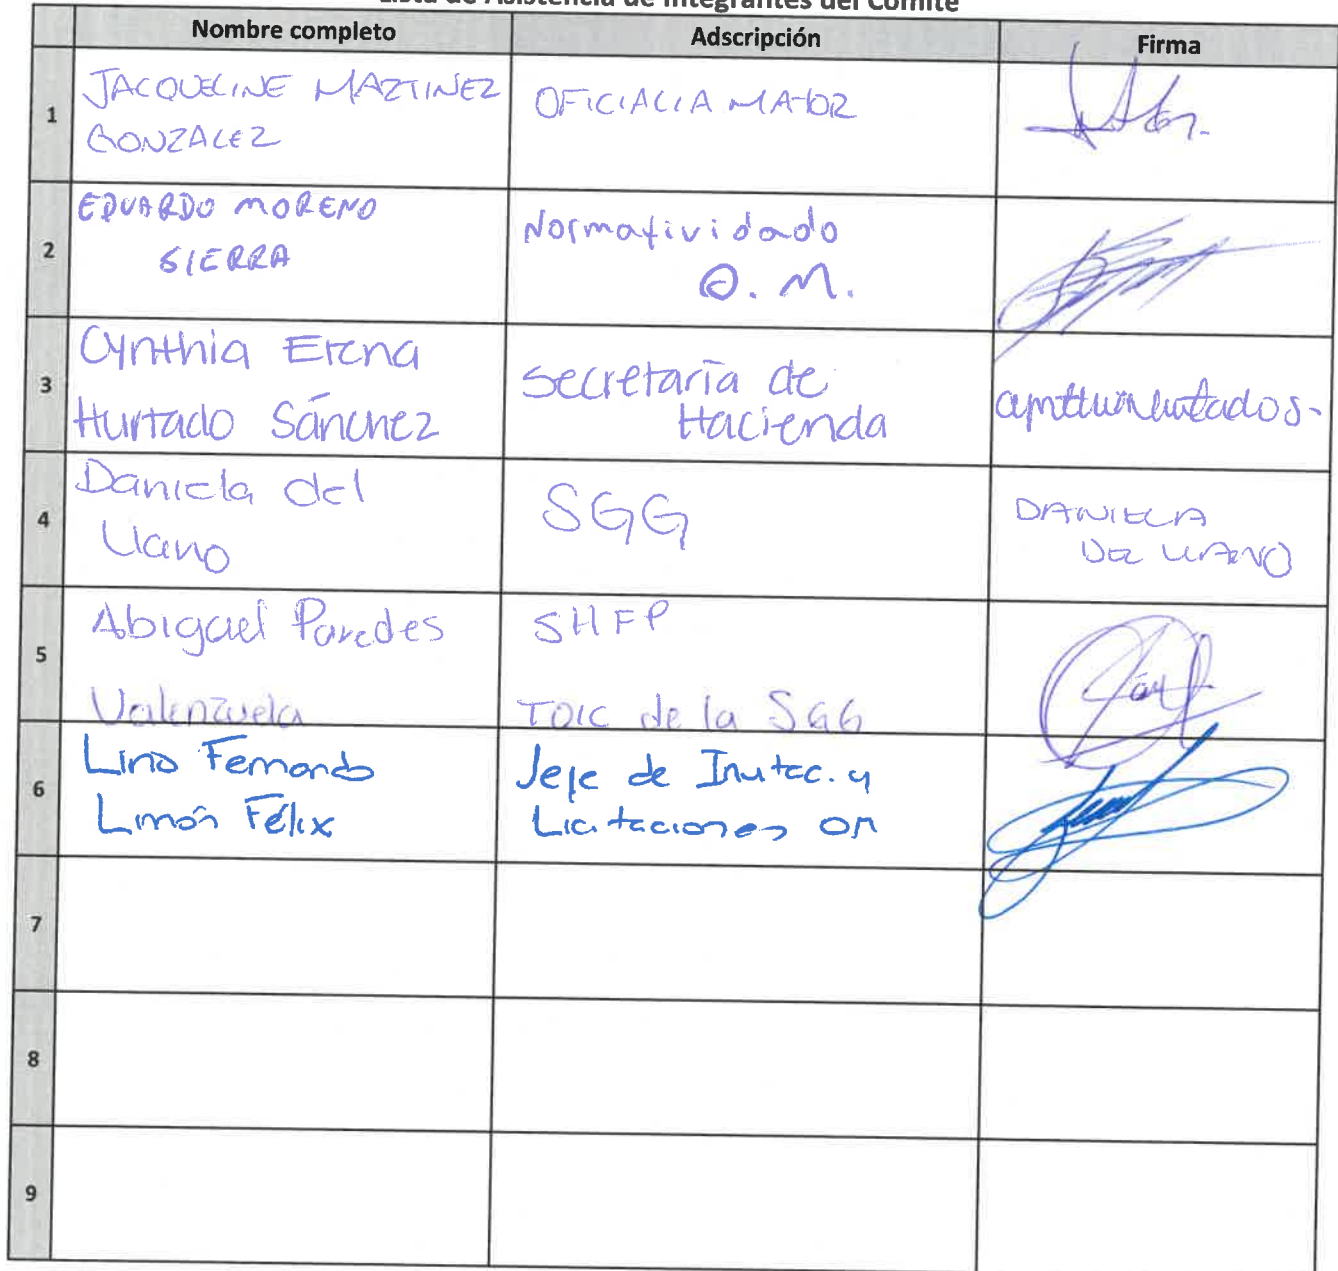 Lista de Asistencia de Integrantes del Comité
Nombre completo Adscripción Firma
1 JACQUELINE MARTINEZ GONZALEZ OFICIALIA MAYOR
2 EDUARDO MORENO SIERRA Normatividad O. M.
3 Cynthia Erena Hurtado Sánchez Secretaría de Hacienda
4 Daniela del Llano SGG DANIELA DEL LLANO
5 Abigael Paredes Valenzuela SHFP TOIC de la SGG
6 Lino Fernando Limón Félix Jefe de Invitac. y Licitaciones OM
7
8
9